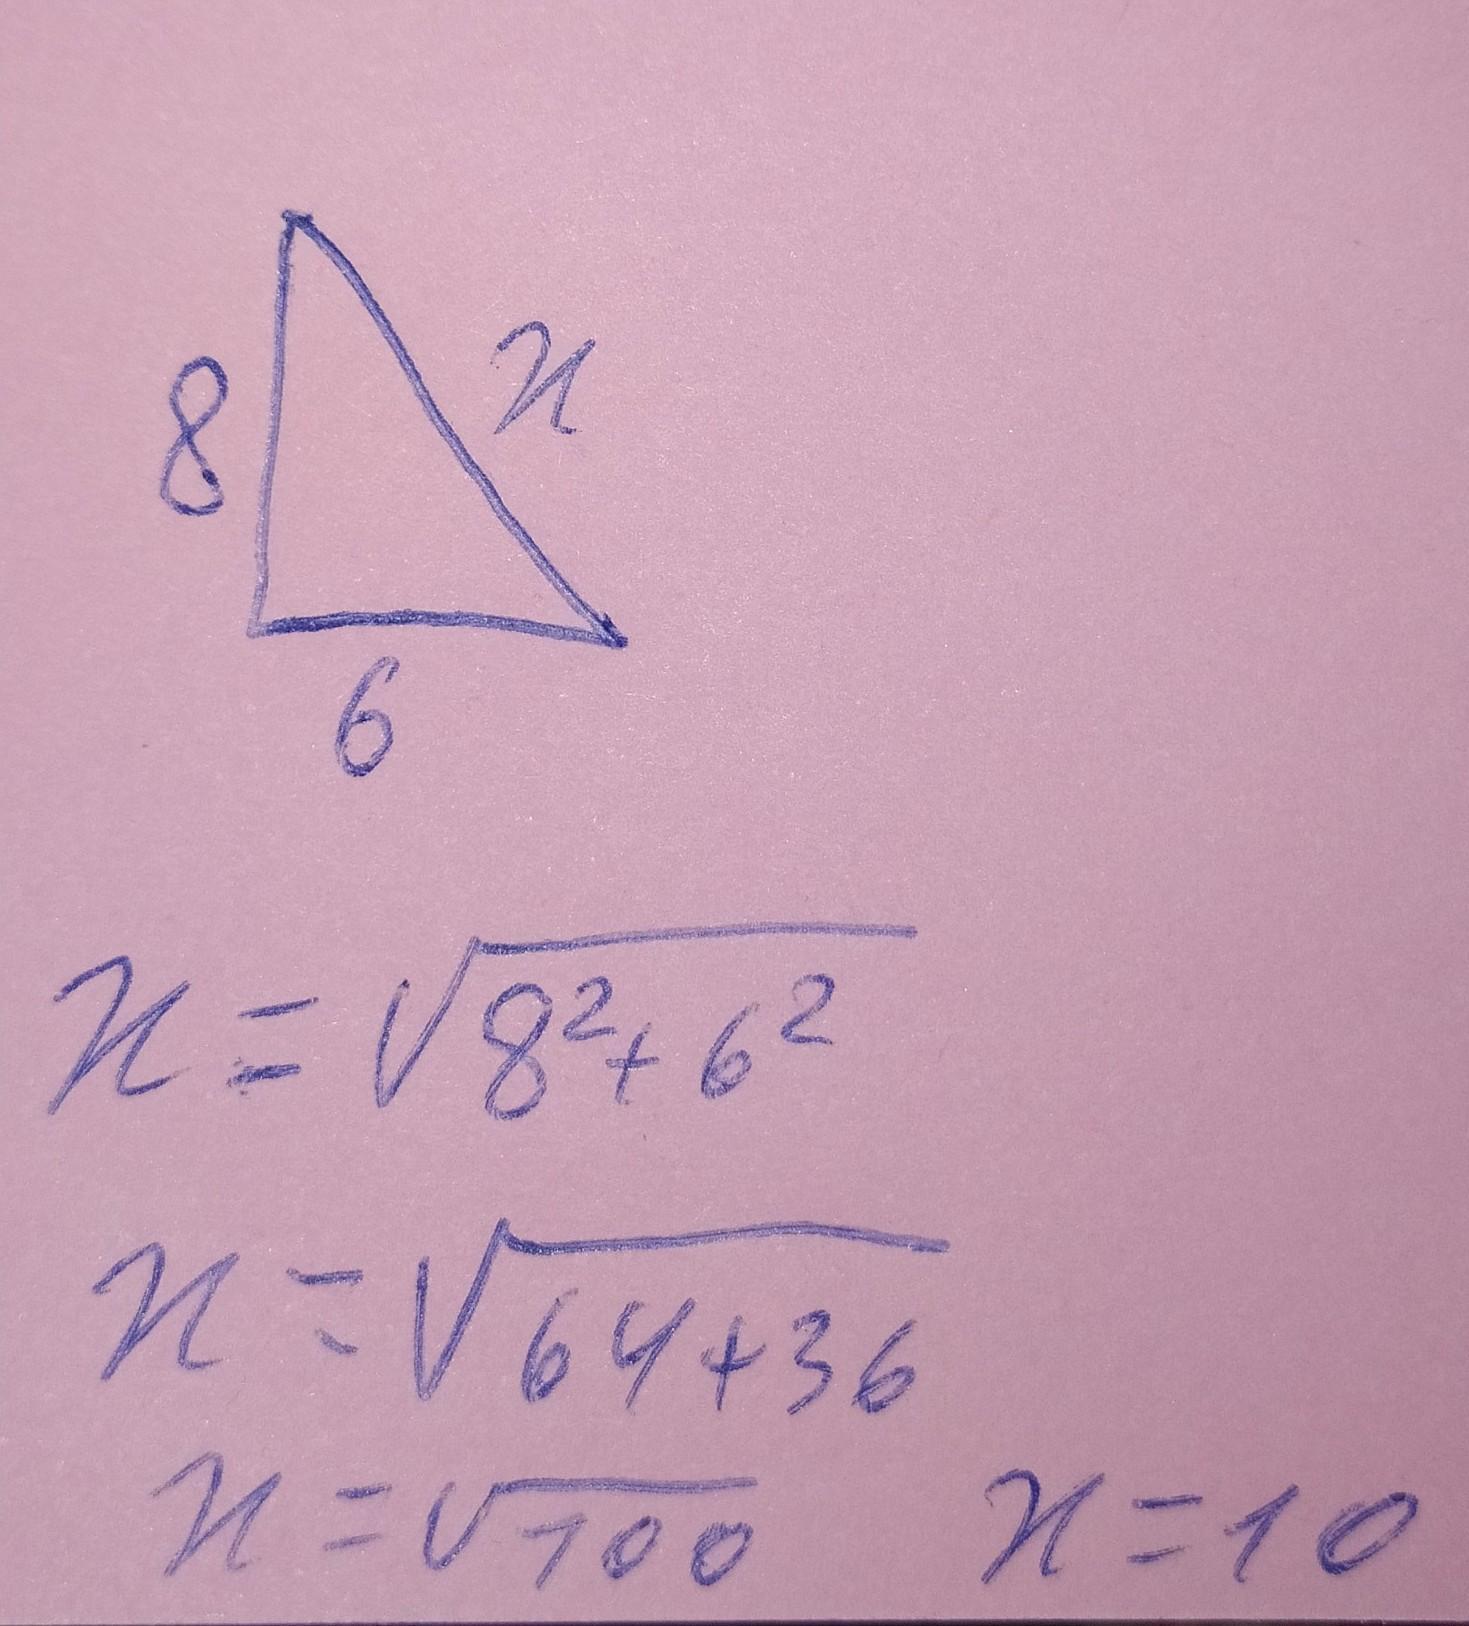 8
x
6
x = √8² + 6²
x = √64 + 36
x = √100 x = 10